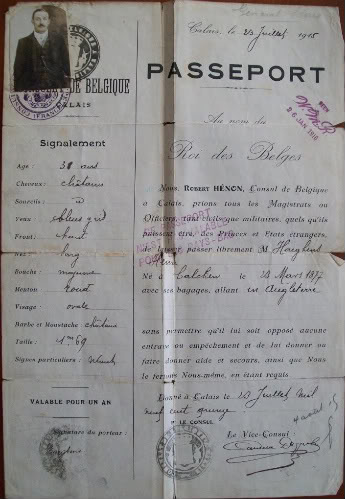 Calais, le 23 Juillet 1915
DE BELGIQUE
CALAIS
PASSEPORT
26 JAN 1916
Au nom du
Roi des Belges
Signalement
Age : 38 ans
Cheveux : châtains
Sourcils : id
Yeux : bleus gris
Front : haut
Nez : long
Bouche : moyenne
Menton : rond
Visage : ovale
Barbe et Moustache : châtains
Taille : 1m 69
Signes particuliers :
VALABLE POUR UN AN
Signature du porteur :
Nous, ROBERT HÉNON, Consul de Belgique
à Calais, prions tous les Magistrats ou
Officiers, tant civils que militaires, quels qu'ils
puissent être, des Princes et Etats étrangers,
de laisser passer librement M.
Né à Calcken le 24 Mars 1877
avec ses bagages, allant en Angleterre
sans permettre qu'il lui soit opposé aucune
entrave ou empêchement et de lui donner ou
faire donner aide et secours, ainsi que Nous
le ferions Nous-même, en étant requis.
Donné à Calais le 23 Juillet mil
neuf cent quinze
Pr LE CONSUL
Le Vice-Consul